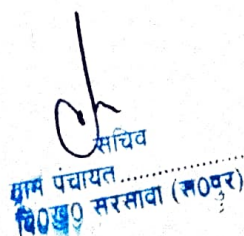 सचिव
ग्राम पंचायत..................
वि०ख० सरसावा (स०पुर)